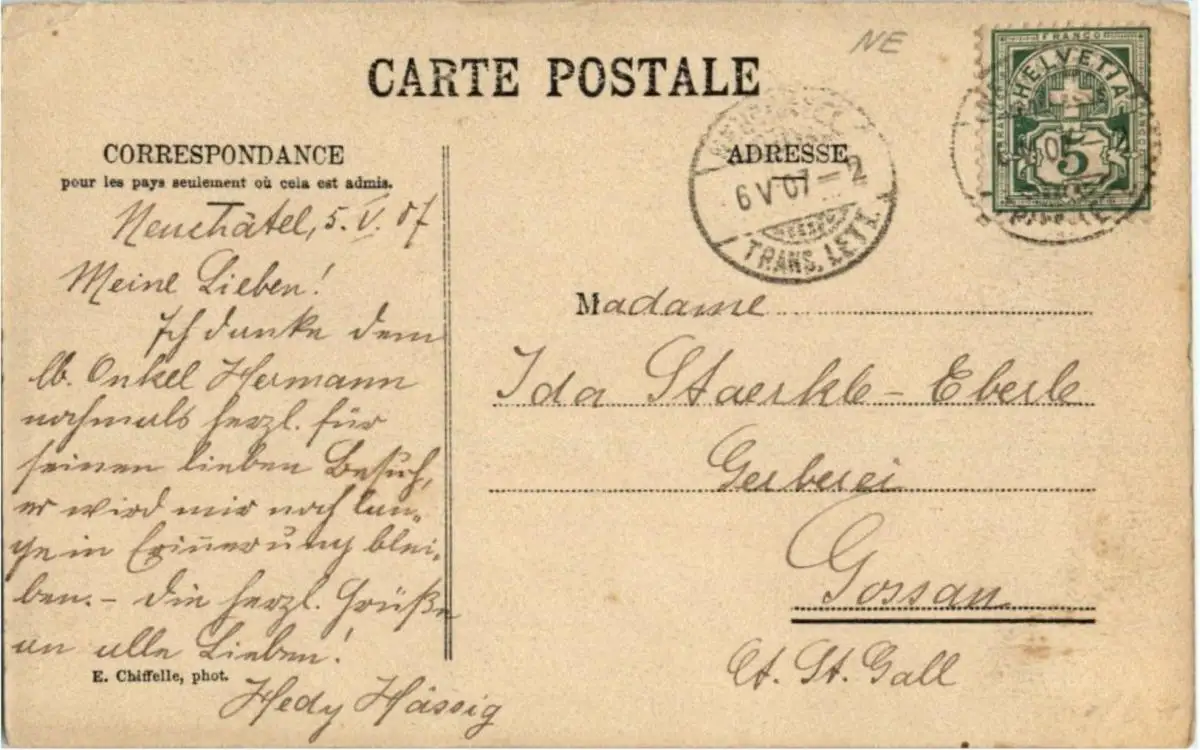 NE
CARTE POSTALE
FRANCO
HELVETIA
5
CORRESPONDANCE
pour les pays seulement où cela est admis.
ADRESSE
6 V 07 – 2
TRANS. LETT.
Neuchâtel, 5. V. 07
Meine Lieben!
Ich danke dem
lb. Onkel Hermann
nochmals herzl. für
seinen lieben Besuch,
er wird mir noch lan-
ge in Erinnerung blei-
ben. – Die herzl. Grüße
an alle Lieben!
Hedy Hässig
E. Chiffelle, phot.
Madame
Ida Staerkle-Eberle
Gerberei
Gossau
Ct. St. Gall